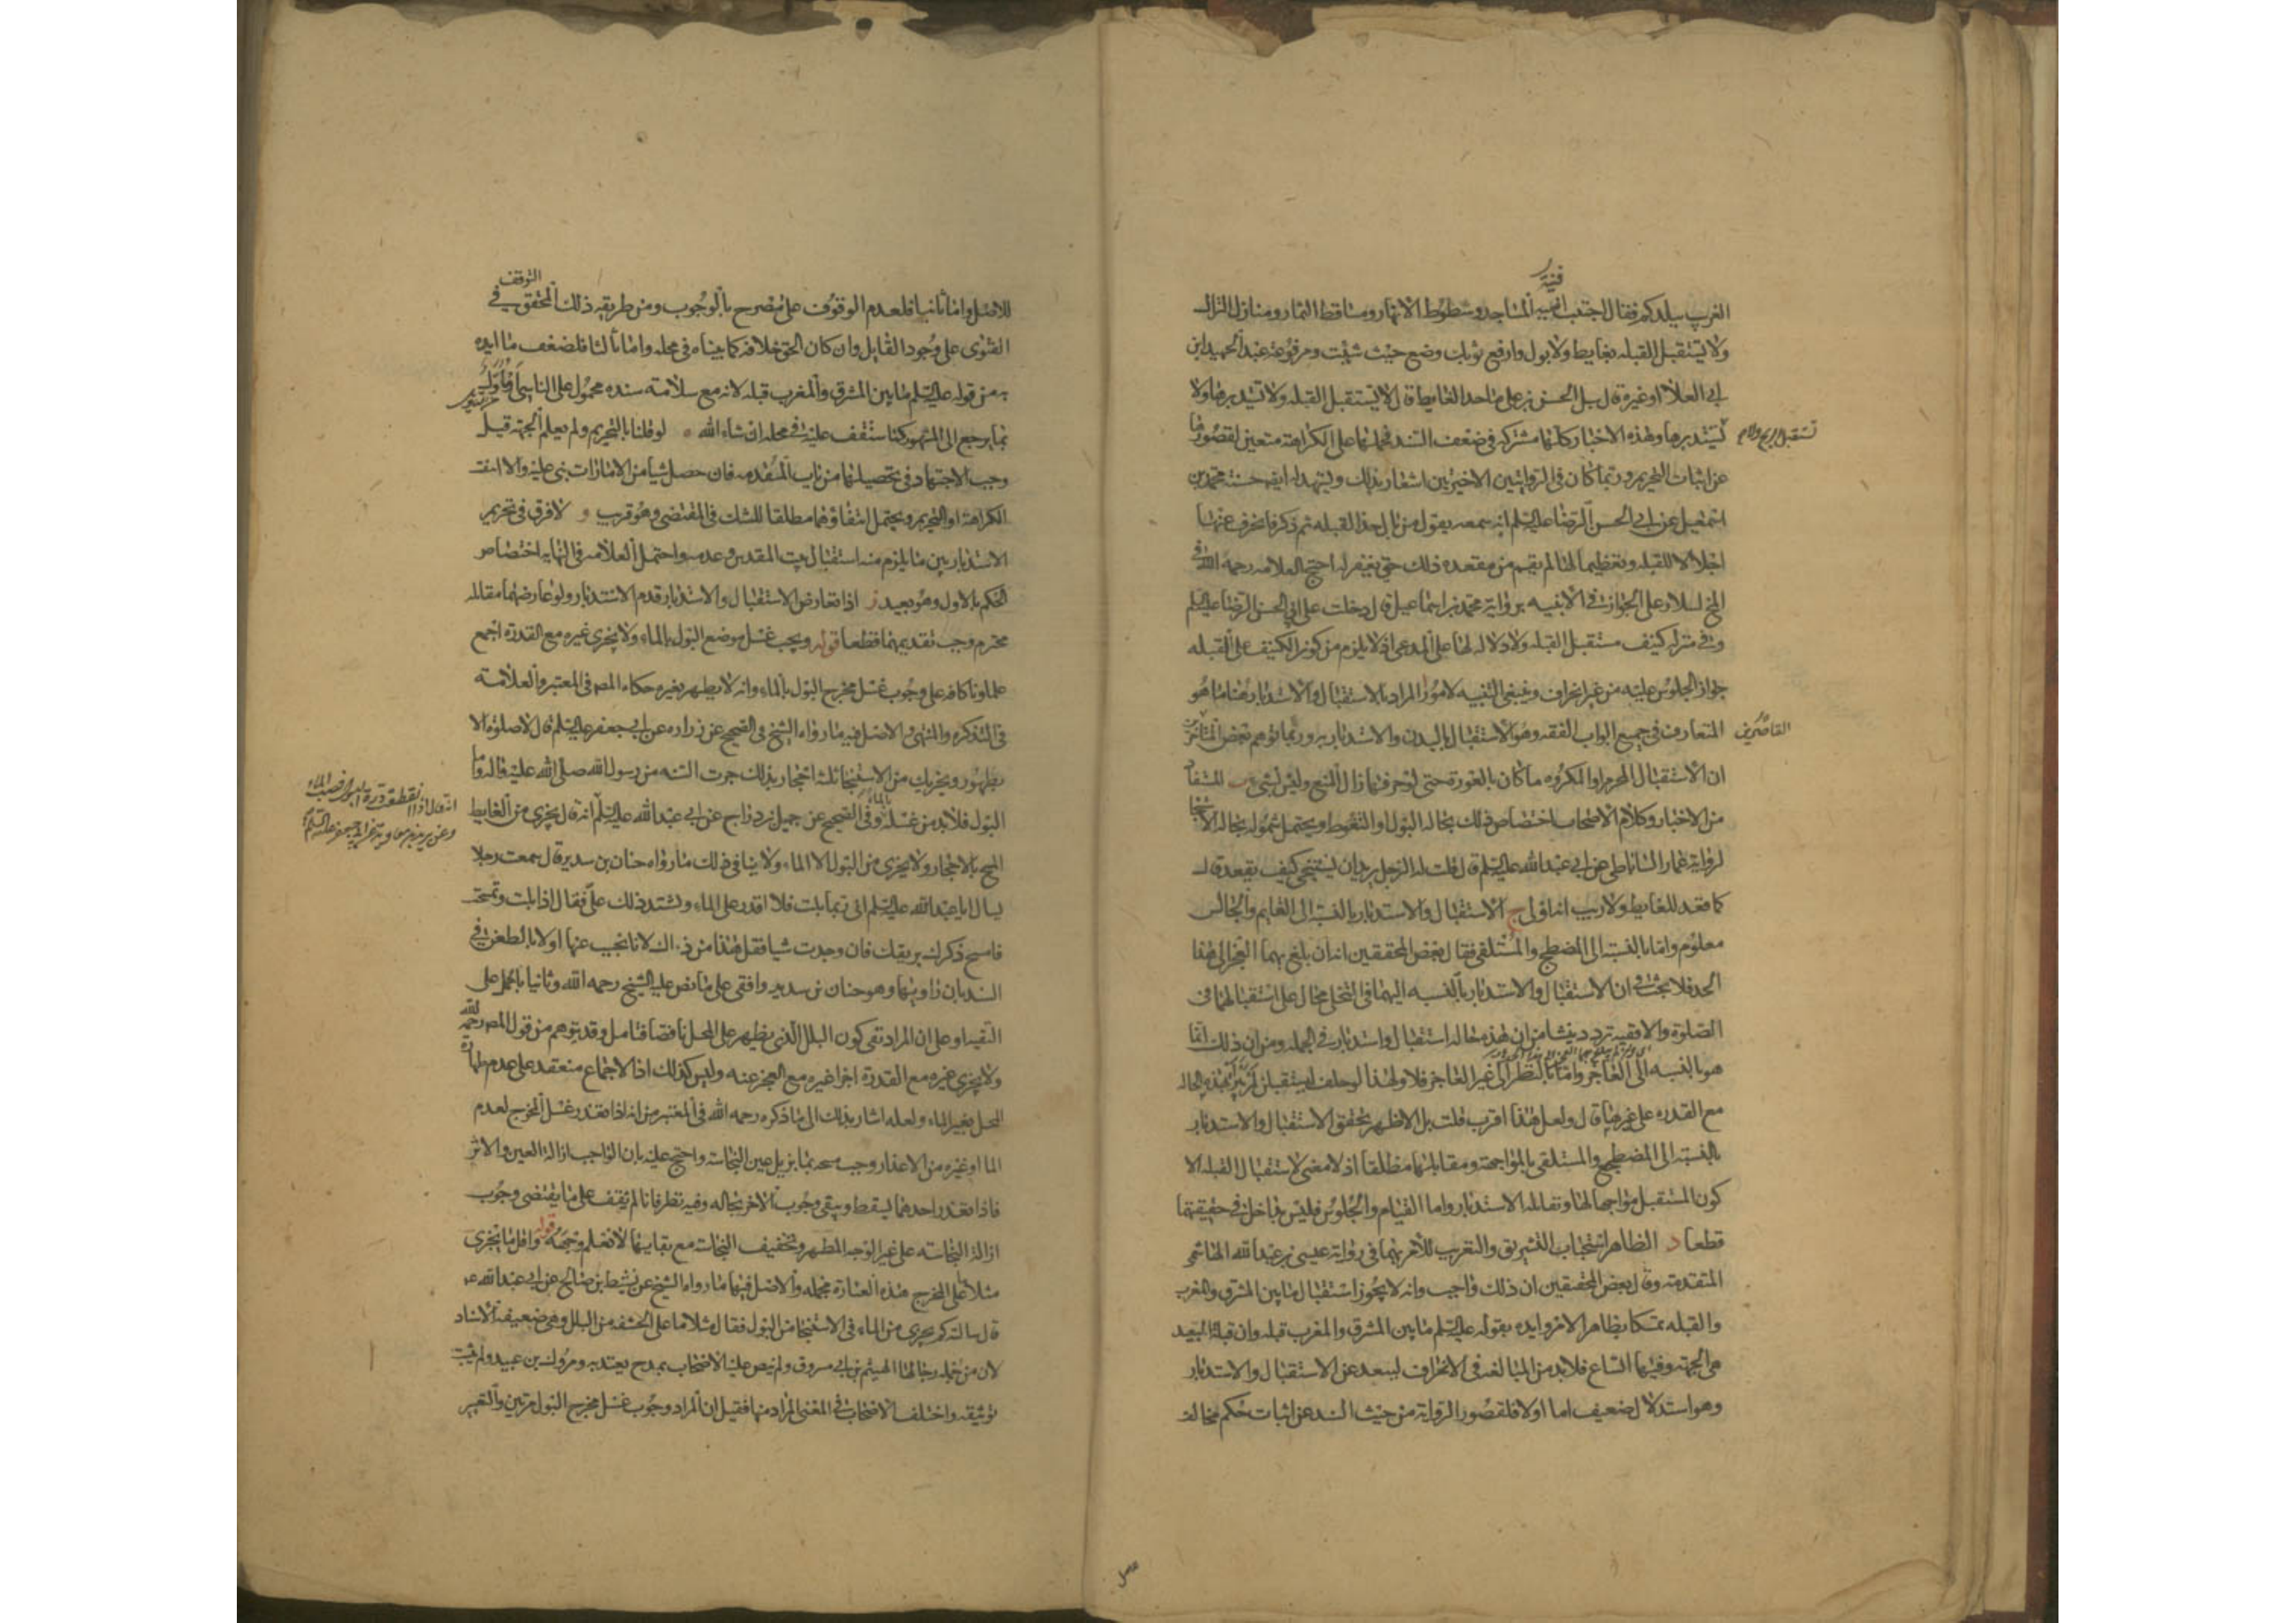 الغريب ببلدكم فقال اجتنب افنية المساجد وشطوط الانهار ومساقط الثمار ومنازل النزال
ولا تستقبل القبله بغايط ولا بول وارفع ثوبك وضع حيث شيت ومرفوعة عبد الحميد ابن
ابي العلا او غيره قال سئل الحسن بن علي ما حد الغايط قال لا تستقبل القبله ولا تستدبرها ولا
تستقبل الريح ولا
تستدبرها وهذه الاخبار كلها مشتركه في ضعف السند فحملها على الكراهة متعين لقصورها
عن اثبات التحريم وربما كان في الروايتين الاخيرتين اشعار بذلك ويشهد له ايضا حسنة محمد بن
اسمعيل عن ابي الحسن الرضا عليه السلم انه سمعه يقول من بال حذا القبله ثم ذكر فانحرف عنها
اجلالا للقبله وتعظيما لها لم يقم من مقعده ذلك حتى يغفر له احتج العلامه رحمه الله في
المخ لسلار على الجواز في الابنيه برواية محمد بن اسماعيل قال دخلت على ابي الحسن الرضا عليه السلم
وفي منزله كنيف مستقبل القبله ولا دلاله لها على المدعى اذ لا يلزم من كون الكنيف على القبله
جواز الجلوس عليه من غير انحراف وينبغي التنبيه لامور ا المراد بالاستقبال والاستدبار هنا ما هو
المتعارف في جميع ابواب الفقه وهو الاستقبال بالبدن والاستدبار به وربما توهم بعض المتأخرين
القاصرين
ان الاستقبال المحرم او المكروه ما كان بالعورة حتى لو حرفها زال المنع وليس بشي ب المستفاد
من الاخبار وكلام الاصحاب اختصاص ذلك بحاله البول او التغوط ويحتمل شموله بحاله الاستنجا
لرواية عمار الساباطي عن ابي عبد الله عليه السلم قال قلت له الرجل يريد ان يستنجي كيف يقعد قال
كما قعد للغايط ولا ريب انه اولى ج الاستقبال والاستدبار بالنسبه الى القايم والجالس
معلوم واما بالنسبة الى المضطجع والمستلقي فقال بعض المحققين انه ان بلغ بهما العجز الى هذا
الحد فلا بحث في ان الاستقبال والاستدبار بالنسبه اليهما في التخلي محال على استقبالهما في
الصلوة والا ففيه تردد ينشا من ان هذه حاله استقبال واستدبار في الجمله ومن ان ذلك انما
هو بالنسبه الى العاجز واما بالنظر الى غير العاجز فلا ولهذا لو حلف ليستقبلن لم يبر بهذه الحاله
مع القدره على غيرها قال ولعل هذا اقرب قلت بل الاظهر تحقق الاستقبال والاستدبار
بالنسبة الى المضطجع والمستلقي بالمواجهة ومقابلتها مطلقا اذ لا معنى لاستقبال القبله الا
كون المستقبل مواجها لها وتقابله الاستدبار واما القيام والجلوس فليس بداخل في حقيقتهما
قطعا د الظاهر استحباب التشريق والتغريب للامر بهما في رواية عيسى بن عبد الله الهاشمي
المتقدمة وقال بعض المحققين ان ذلك واجب وانه لا يجوز استقبال ما بين المشرق والمغرب
والقبله تمسكا بظاهر الامر وايده بقوله عليه السلم ما بين المشرق والمغرب قبله وان قبلة البعيد
هي الجهة وفيها اتساع فلا بد من المبالغه في الانحراف ليبعد عن الاستقبال والاستدبار
وهو استدلال ضعيف اما اولا فلقصور الرواية من حيث السند عن اثبات حكم مخالف
للاصل واما ثانيا فلعدم الوقوف على مصرح بالوجوب ومن طريقه ذلك المحقق التوقف في
الفتوى على وجود القايل وان كان الحق خلافه كما بيناه في محله واما ثالثا فلضعف ما ايده
به من قوله عليه السلم ما بين المشرق والمغرب قبله لانه مع سلامة سنده محمول على الناسي
بما يرجع الى المشهور كما ستقف عليه في محله ان شاء الله ه لو قلنا بالتحريم ولم يعلم الجهة قيل
وجب الاجتهاد في تحصيلها من باب المقدمه فان حصل شيا من الامارات بنى عليه والا انتفت
الكراهة او التحريم ويحتمل انتفاؤهما مطلقا للشك في المقتضي وهو قريب و لا فرق في تحريم
الاستدبار بين ما يلزم منه استقبال بيت المقدس وعدمه واحتمل العلامه في النهايه اختصاص
الحكم بالاول وهو بعيد ز اذا تعارض الاستقبال والاستدبار قدم الاستدبار ولو عارضهما مقابله
محترم وجب تقديمهما قطعا قوله ويجب غسل موضع البول بالماء ولا يجزي غيره مع القدرة اجمع
علماونا كافه على وجوب غسل مخرج البول بالماء وانه لا يطهر بغيره حكاه المص في المعتبر والعلامة
في التذكره والمنتهى والاصل فيه ما رواه الشيخ في الصحيح عن زراره عن ابي جعفر عليه السلم قال لا صلوة الا
بطهور ويجزيك من الاستنجا ثلثه احجار بذلك جرت السنه من رسول الله صلى الله عليه واله واما
البول فلا بد من غسله بالماء وفي الصحيح عن جميل بن دراج عن ابي عبد الله عليه السلم انه قال يجزي من الغايط
انه قال اذا انقطعت درة البول فصب الماء
وعن بريد بن معاوية عن ابي جعفر عليه السلم
المسح بالاحجار ولا يجزي من البول الا الماء ولا ينافي ذلك ما رواه حنان بن سدير قال سمعت رجلا
يسال ابا عبد الله عليه السلم اني ربما بلت فلا اقدر على الماء ويشتد ذلك علي فقال اذا بلت وتمسحت
فامسح ذكرك بريقك فان وجدت شيا فقل هذا من ذاك لانا نجيب عنها اولا بالطعن في
السند بان راويها وهو حنان بن سدير واقفي على ما نص عليه الشيخ رحمه الله وثانيا بالحمل على
التقيه او على ان المراد نفي كون البلل الذي يظهر على المحل ناقضا فتامل وقد يتوهم من قول المص رحمه الله
ولا يجزي غيره مع القدرة اجزا غيره مع العجز عنه وليس كذلك اذ الاجماع منعقد على عدم طهارة
المحل بغير الماء ولعله اشار بذلك الى ما ذكره رحمه الله في المعتبر من انه اذا تعذر غسل المخرج لعدم
الما او غيره من الاعذار وجب مسحه بما يزيل عين النجاسة واحتج عليه بان الواجب ازالة العين والاثر
فاذا تعذر احدهما لسقط ويبقى وجوب الاخر بحاله وفيه نظر فانا لم نقف على ما يقتضي وجوب
ازالة النجاسه على غير الوجه المطهر وتخفيف النجاسة مع بقايها لا نعلم وجهه قوله واقل ما يجزي
مثلا ما على المخرج هذه العبارة مجمله والاصل فيها ما رواه الشيخ عن نشيط بن صالح عن ابي عبد الله ع
قال سالته كم يجزي من الماء في الاستنجا من البول فقال مثلا ما على الحشفه من البلل وهي ضعيفة الاسناد
لان من جملة رجالها الهيثم بن ابي مسروق ولم ينص عليه الاصحاب بمدح يعتد به ومروك بن عبيد ولم يثبت
توثيقه واختلف الاصحاب في المعنى المراد منها فقيل ان المراد وجوب غسل مخرج البول مرتين والتعبير